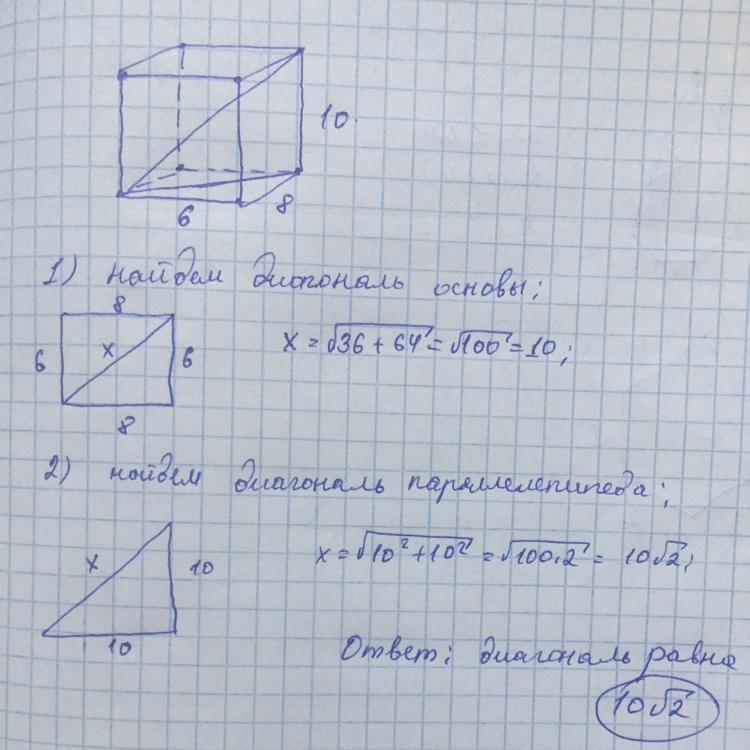 10.
8
6
1) найдем диагональ основы;
8
6
x
6
8
x = √36 + 64 = √100 = 10;
2) найдем диагональ параллелепипеда;
x
10
10
x = √10² + 10² = √100·2 = 10√2;
Ответ: диагональ равна
10√2